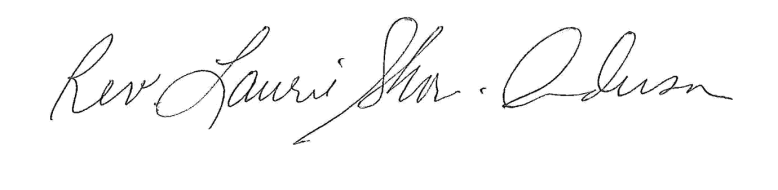 Rev. Laurie Shor-Anderson